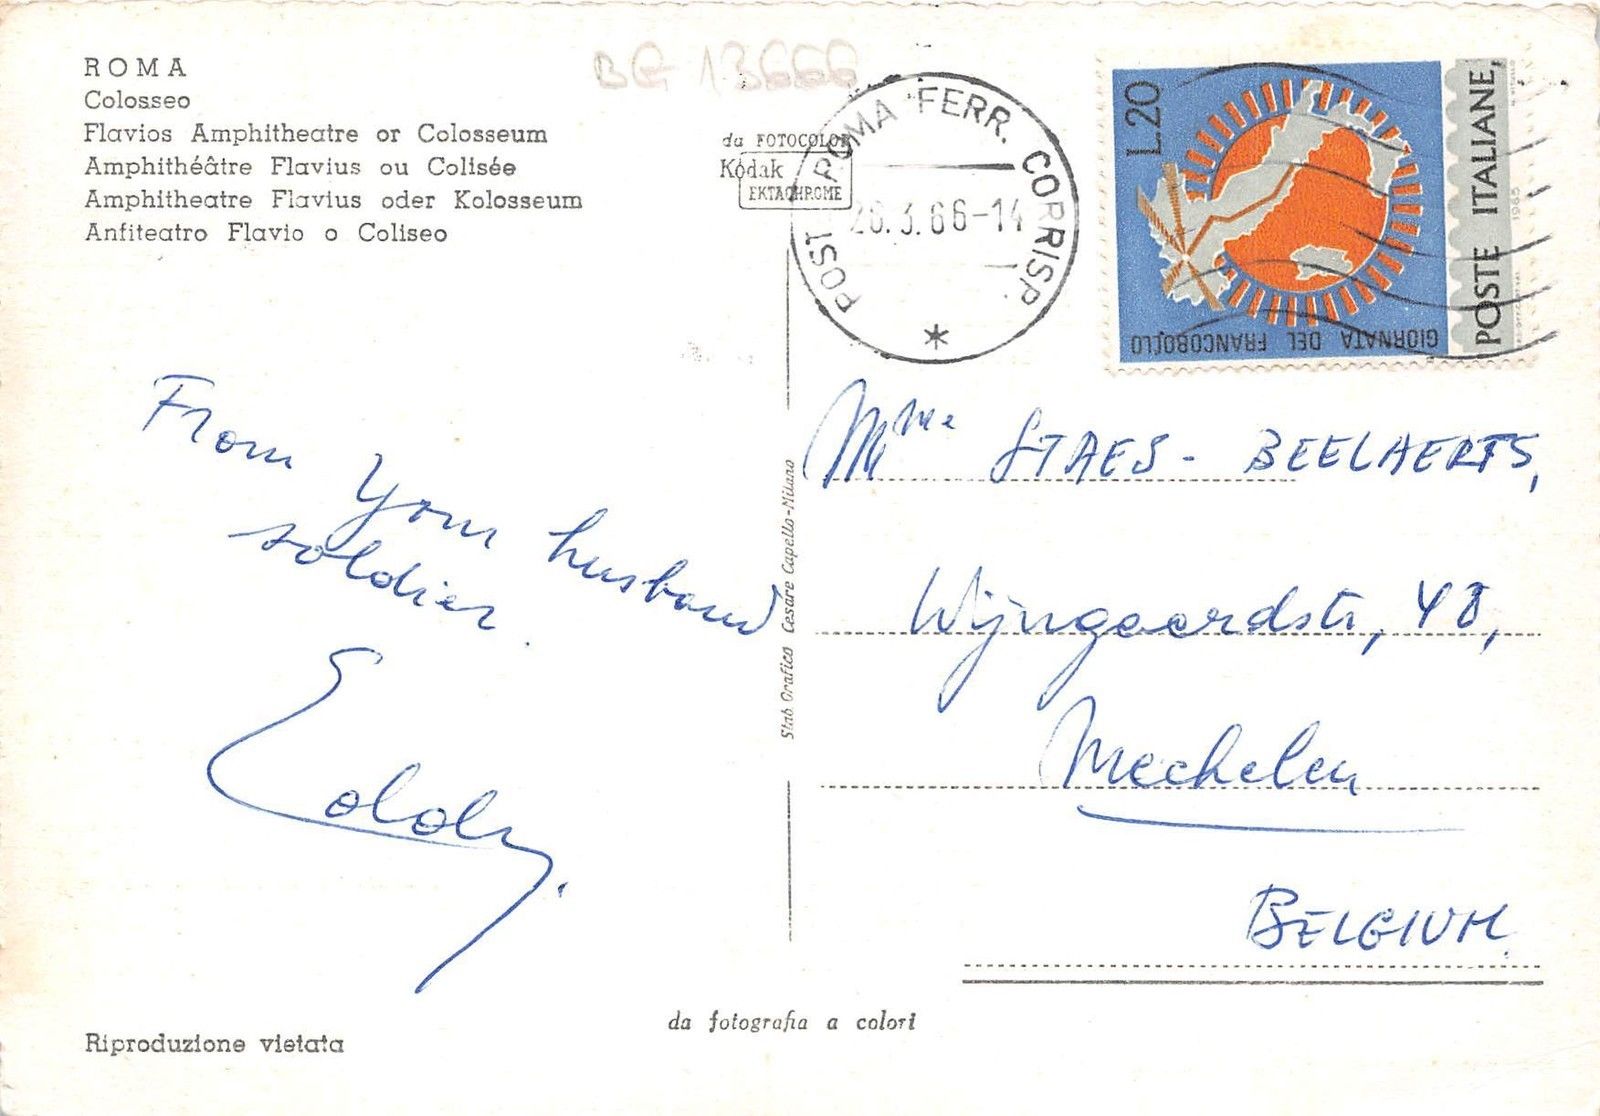 ROMA
Colosseo
Flavios Amphitheatre or Colosseum
Amphithéâtre Flavius ou Colisée
Amphitheatre Flavius oder Kolosseum
Anfiteatro Flavio o Coliseo
BG 13666
da FOTOCOLOR
Kodak
EKTACHROME
POST ROMA FERR. CORRISP.
26.3.66-14
L.20
GIORNATA DEL FRANCOBOLLO
POSTE ITALIANE
1965
From your husband
soldier.
Eddy.
Stab Grafico Cesare Capello-Milano
Mme STAES - BEELAERTS,
Wijngaardstr, 48,
Mechelen
BELGIUM
da fotografia a colori
Riproduzione vietata